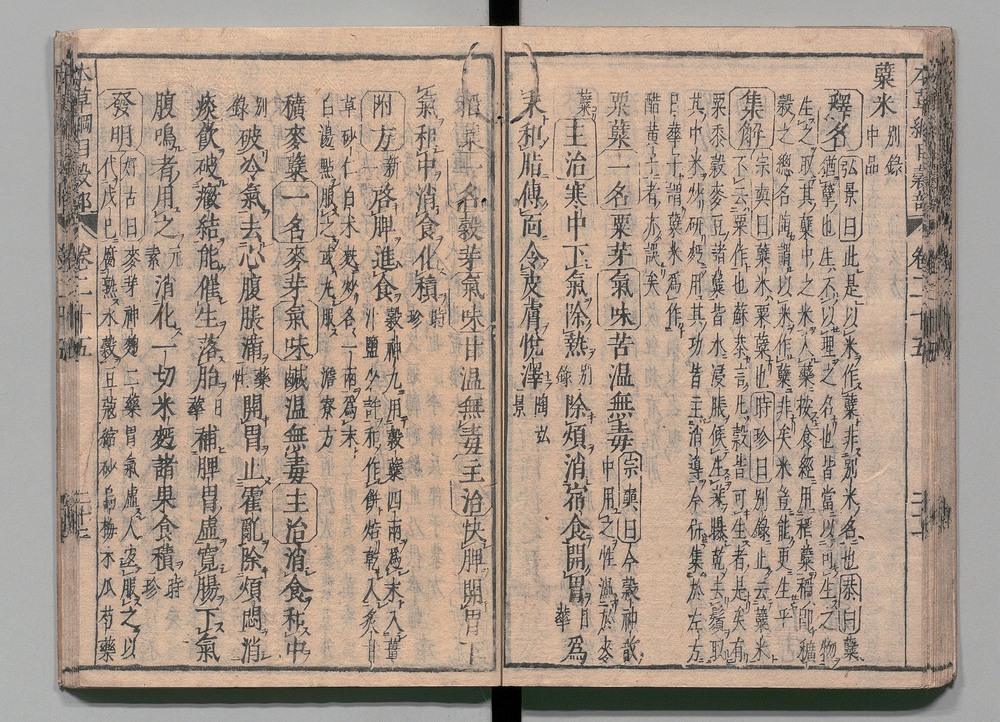 本草綱目穀部 卷二十五
蘗米 別錄中品
釋名 弘景曰此是以米作蘗非別米名也恭曰蘗
猶孽也生不以理之名也皆當以可生之物
生之取其蘗中之米入藥按食經用稻蘗稻即穬
穀之總名陶謂以米作蘗非矣米豈能更生乎
集解 宗奭曰蘗米粟蘗也時珍曰別錄止云蘗米
不云粟作也蘇恭言凡穀皆可生者是矣有
粟黍穀麥豆諸蘗皆水浸脹候生芽曝乾去鬚取
其中米炒研麪用其功皆主消導今併集於左方
日華子謂蘗米爲作
醋黄子者亦誤矣
粟蘗一名粟芽氣味苦溫無毒 宗奭曰今穀神散中用之性溫於麥
蘗 主治寒中下氣除熱 別錄 除煩消宿食開胃 日華 爲
末和脂傅面令皮膚悅澤 陶弘景
稻蘗一名穀芽氣味甘溫無毒主治快脾開胃下
氣和中消食化積 時珍
附方 新一 啓脾進食 穀神丸用穀蘗四兩爲末入薑
汁鹽少許和作餅焙乾入炙甘
草砂仁白朮麩炒各一兩爲末
白湯點服之或丸服 澹寮方
穬麥蘗一名麥芽氣味鹹溫無毒主治消食和中
別錄 破冷氣去心腹脹滿 藥性 開胃止霍亂除煩悶消
痰飲破癥結能催生落胎 日華 補脾胃虛寬腸下氣
腹鳴者用之 元素 消化一切米麪諸果食積 時珍
發明 好古曰麥芽神麴二藥胃氣虛人宜服之以
代戊己腐熟水穀豆蔻縮砂烏梅木瓜芍藥
本草綱目穀部 卷二十五